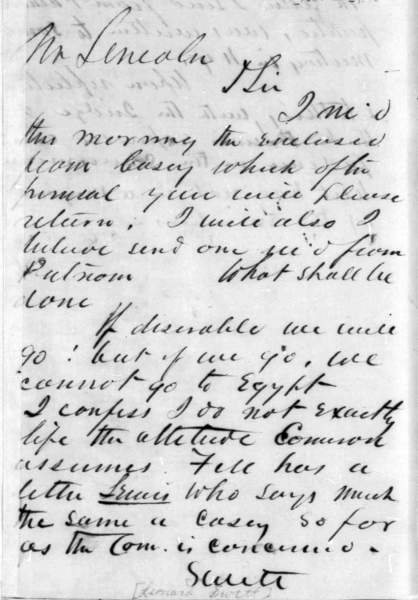 Mr Lincoln
D Sir
I rec'd
this morning the enclosed
from Casey which after
perusal you will please
return. I will also I
believe send one rec'd from
Putnam What shall be
done
If desirable we will
go! but if we go, we
cannot go to Egypt
I confess I do not exactly
like the attitude Common
assumes. Fell has a
letter Lewis who says much
the same a Casey so far
as the Com. is concerned.
Swett
[Leonard Swett]